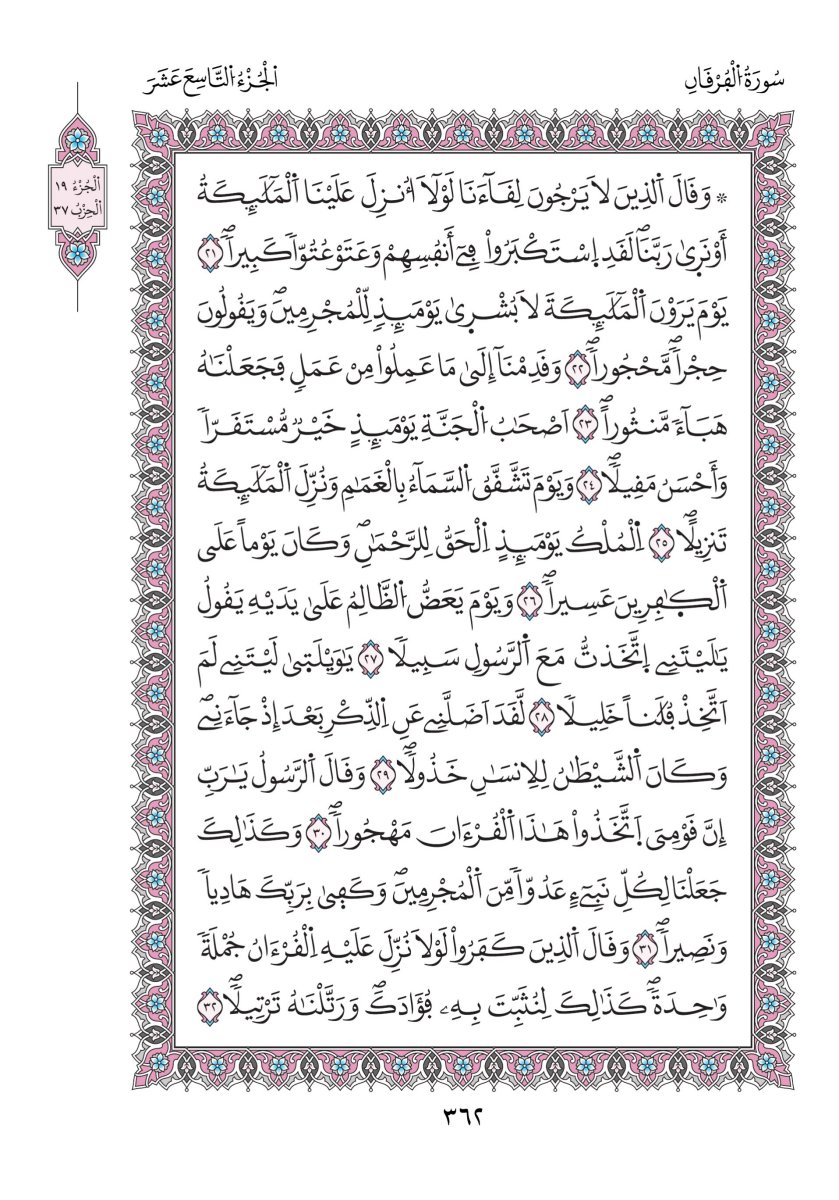 سُورَةُ اُ۬لْفُرْقَانِ
اَ۬لْجُزْءُ اُ۬لتَّاسِعَ عَشَرَ
اَلْجُزْءُ ١٩
اَلْحِزْبُ ٣٧
۞ وَقَالَ اَ۬لذِينَ لَا يَرْجُونَ لِقَآءَنَا لَوْلَآ أُنزِلَ عَلَيْنَا اَ۬لْمَلَٰٓئِكَةُ
أَوْ نَر۪ىٰ رَبَّنَاۖ لَقَدِ اِ۪سْتَكْبَرُواْ فِےٓ أَنفُسِهِمْ وَعَتَوْ عُتُوّاٗ كَبِيراٗۖ ٢١
يَوْمَ يَرَوْنَ اَ۬لْمَلَٰٓئِكَةَ لَا بُشْر۪ىٰ يَوْمَئِذٖ لِّلْمُجْرِمِينَۖ وَيَقُولُونَ
حِجْراٗ مَّحْجُوراٗۖ ٢٢ وَقَدِمْنَآ إِلَىٰ مَا عَمِلُواْ مِنْ عَمَلٖ فَجَعَلْنَٰهُ
هَبَآءٗ مَّنثُوراًۖ ٢٣ اَصْحَٰبُ اُ۬لْجَنَّةِ يَوْمَئِذٍ خَيْرٞ مُّسْتَقَرّاٗ
وَأَحْسَنُ مَقِيلاٗۖ ٢٤ وَيَوْمَ تَشَّقَّقُ اُ۬لسَّمَآءُ بِالْغَمَٰمِ وَنُزِّلَ اَ۬لْمَلَٰٓئِكَةُ
تَنزِيلاًۖ ٢٥ اِ۬لْمُلْكُ يَوْمَئِذٍ اِ۬لْحَقُّ لِلرَّحْمَٰنِۖ وَكَانَ يَوْماً عَلَى
اَ۬لْكٰ۪فِرِينَ عَسِيراٗۖ ٢٦ وَيَوْمَ يَعَضُّ اُ۬لظَّالِمُ عَلَىٰ يَدَيْهِ يَقُولُ
يَٰلَيْتَنِے اِ۪تَّخَذتُّ مَعَ اَ۬لرَّسُولِ سَبِيلاٗ ٢٧ يَٰوَيْلَت۪ىٰ لَيْتَنِے لَمَ
اَتَّخِذْ فُلَٰناً خَلِيلاٗ ٢٨ لَّقَدَ اَضَلَّنِے عَنِ اِ۬لذِّكْرِ بَعْدَ إِذْ جَآءَنِےۖ
وَكَانَ اَ۬لشَّيْطَٰنُ لِلِانسَٰنِ خَذُولاٗۖ ٢٩ وَقَالَ اَ۬لرَّسُولُ يَٰرَبِّ
إِنَّ قَوْمِے اِ۪تَّخَذُواْ هَٰذَا اَ۬لْقُرْءَانَ مَهْجُوراٗۖ ٣٠ وَكَذَٰلِكَ
جَعَلْنَا لِكُلِّ نَبِےٓءٍ عَدُوّاٗ مِّنَ اَ۬لْمُجْرِمِينَۖ وَكَف۪ىٰ بِرَبِّكَ هَادِياٗ
وَنَصِيراٗۖ ٣١ وَقَالَ اَ۬لذِينَ كَفَرُواْ لَوْلَا نُزِّلَ عَلَيْهِ اِ۬لْقُرْءَانُ جُمْلَةٗ
وَٰحِدَةٗۖ كَذَٰلِكَ لِنُثَبِّتَ بِهِۦ فُؤَادَكَۖ وَرَتَّلْنَٰهُ تَرْتِيلاٗۖ ٣٢
٣٦٢